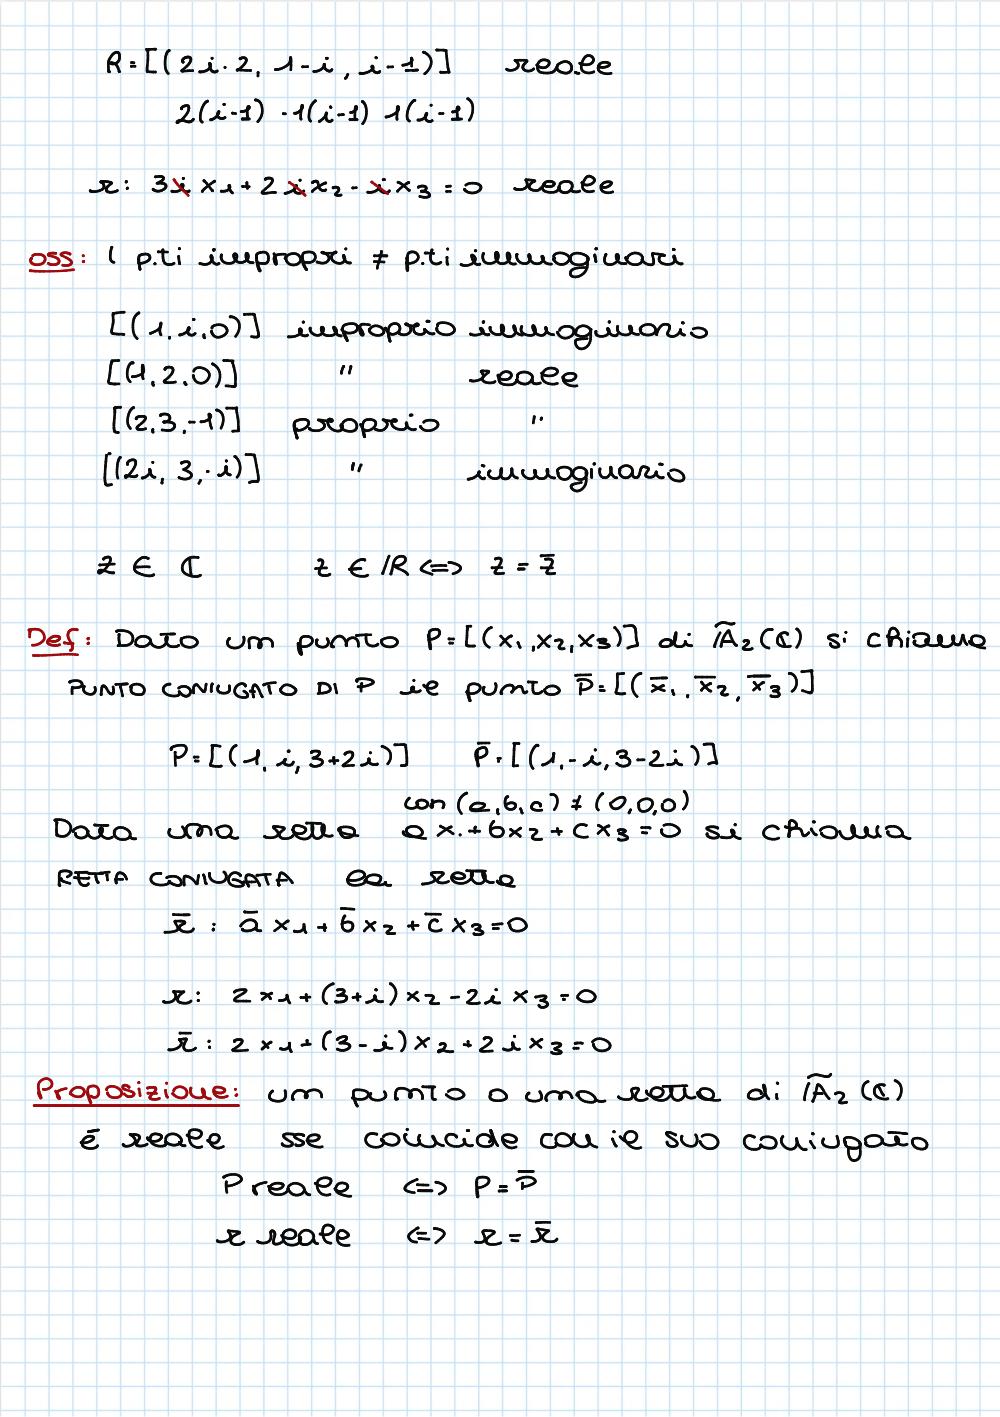 R=[(2i-2, 1-i, i-1)] reale
2(i-1) -1(i-1) 1(i-1)
r: 3i x₁+2ix₂-ix₃=0 reale
oss: I p.ti impropri ≠ p.ti immaginari
[(1,i,0)] improprio immaginario
[(1,2,0)] " reale
[(2,3,-1)] proprio "
[(2i, 3,-i)] " immaginario
z ∈ ℂ z ∈ ℝ <=> z = z̄
Def: Dato un punto P=[(x₁,x₂,x₃)] di Ã₂(ℂ) si chiama
PUNTO CONIUGATO DI P il punto P̄=[(x̄₁,x̄₂,x̄₃)]
P=[(1,i,3+2i)] P̄=[(1,-i,3-2i)]
con (a,b,c) ≠ (0,0,0)
Data una retta ax₁+bx₂+cx₃=0 si chiama
RETTA CONIUGATA la retta
r̄: āx₁+b̄x₂+c̄x₃=0
r: 2x₁+(3+i)x₂-2ix₃=0
r̄: 2x₁+(3-i)x₂+2ix₃=0
Proposizione: un punto o una retta di Ã₂(ℂ)
é reale sse coincide con il suo coniugato
P reale <=> P=P̄
r reale <=> r=r̄